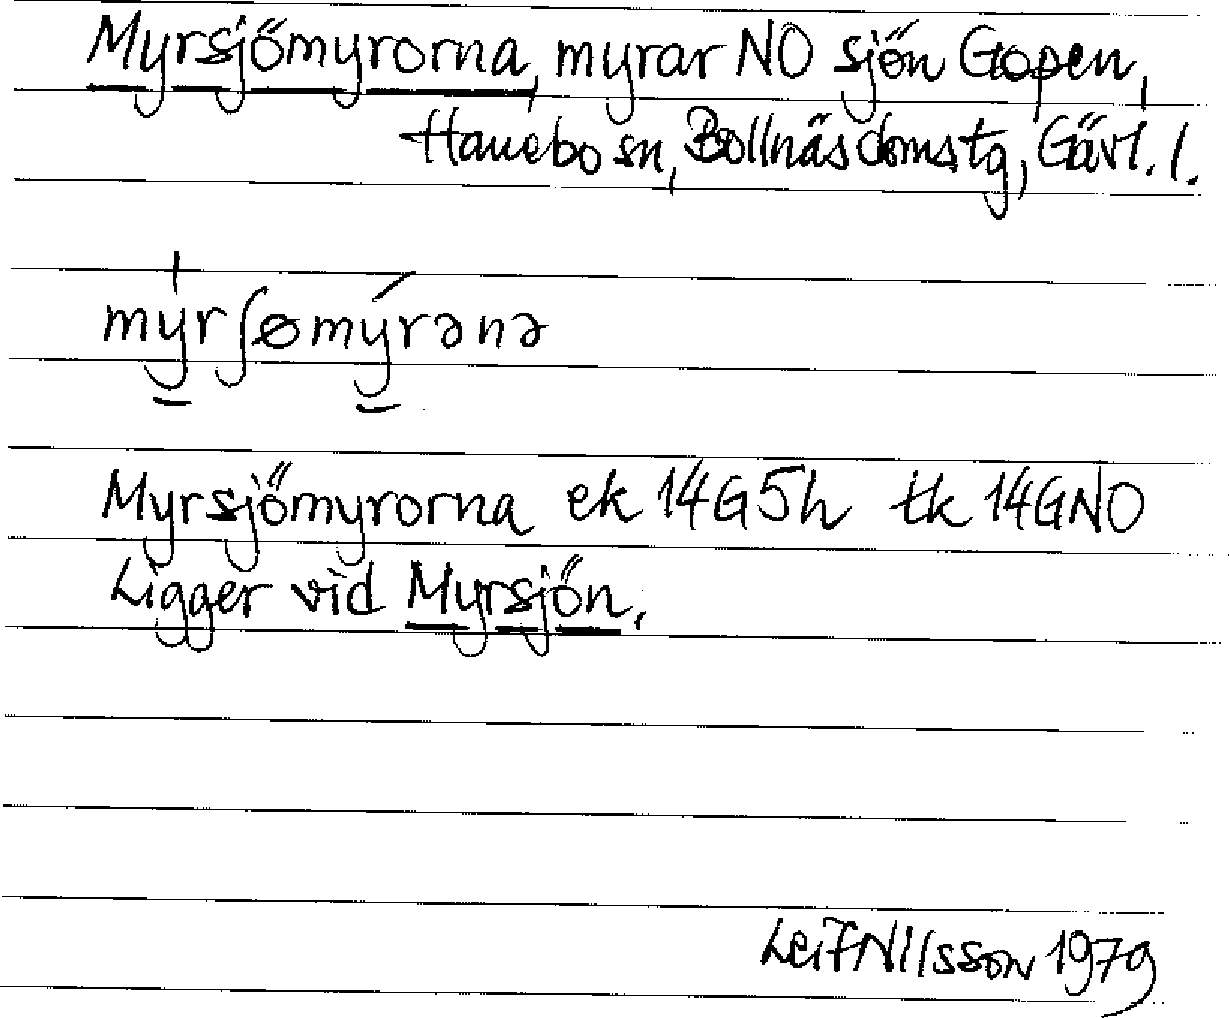 Myrsjömyrorna, myrar NO sjön Gopen,
Hanebo sn, Bollnäs domstg, Gävl. l.
my̱rʃømý̱rənə
Myrsjömyrorna ek 14G5h tk 14GNO
Ligger vid Myrsjön.
Leif Nilsson 1979